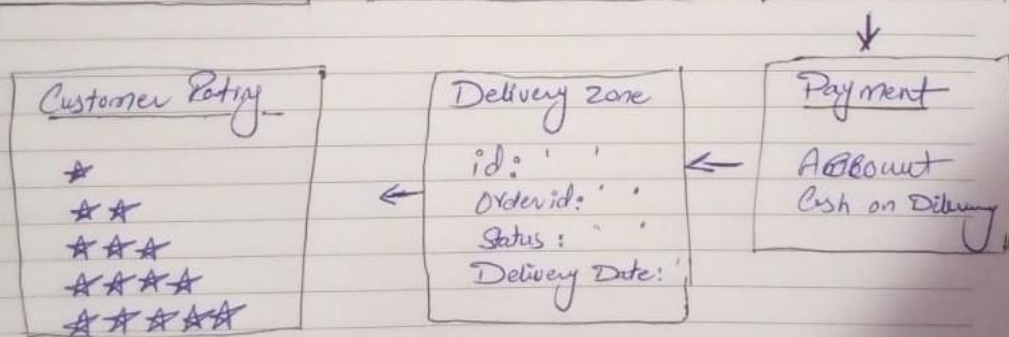 Customer Rating
☆
☆☆
☆☆☆
☆☆☆☆
☆☆☆☆☆
Delivery zone
id: ' '
Orderid: ' '
Status: ' '
Delivery Date: '
Payment
Account
Cash on Dilivery